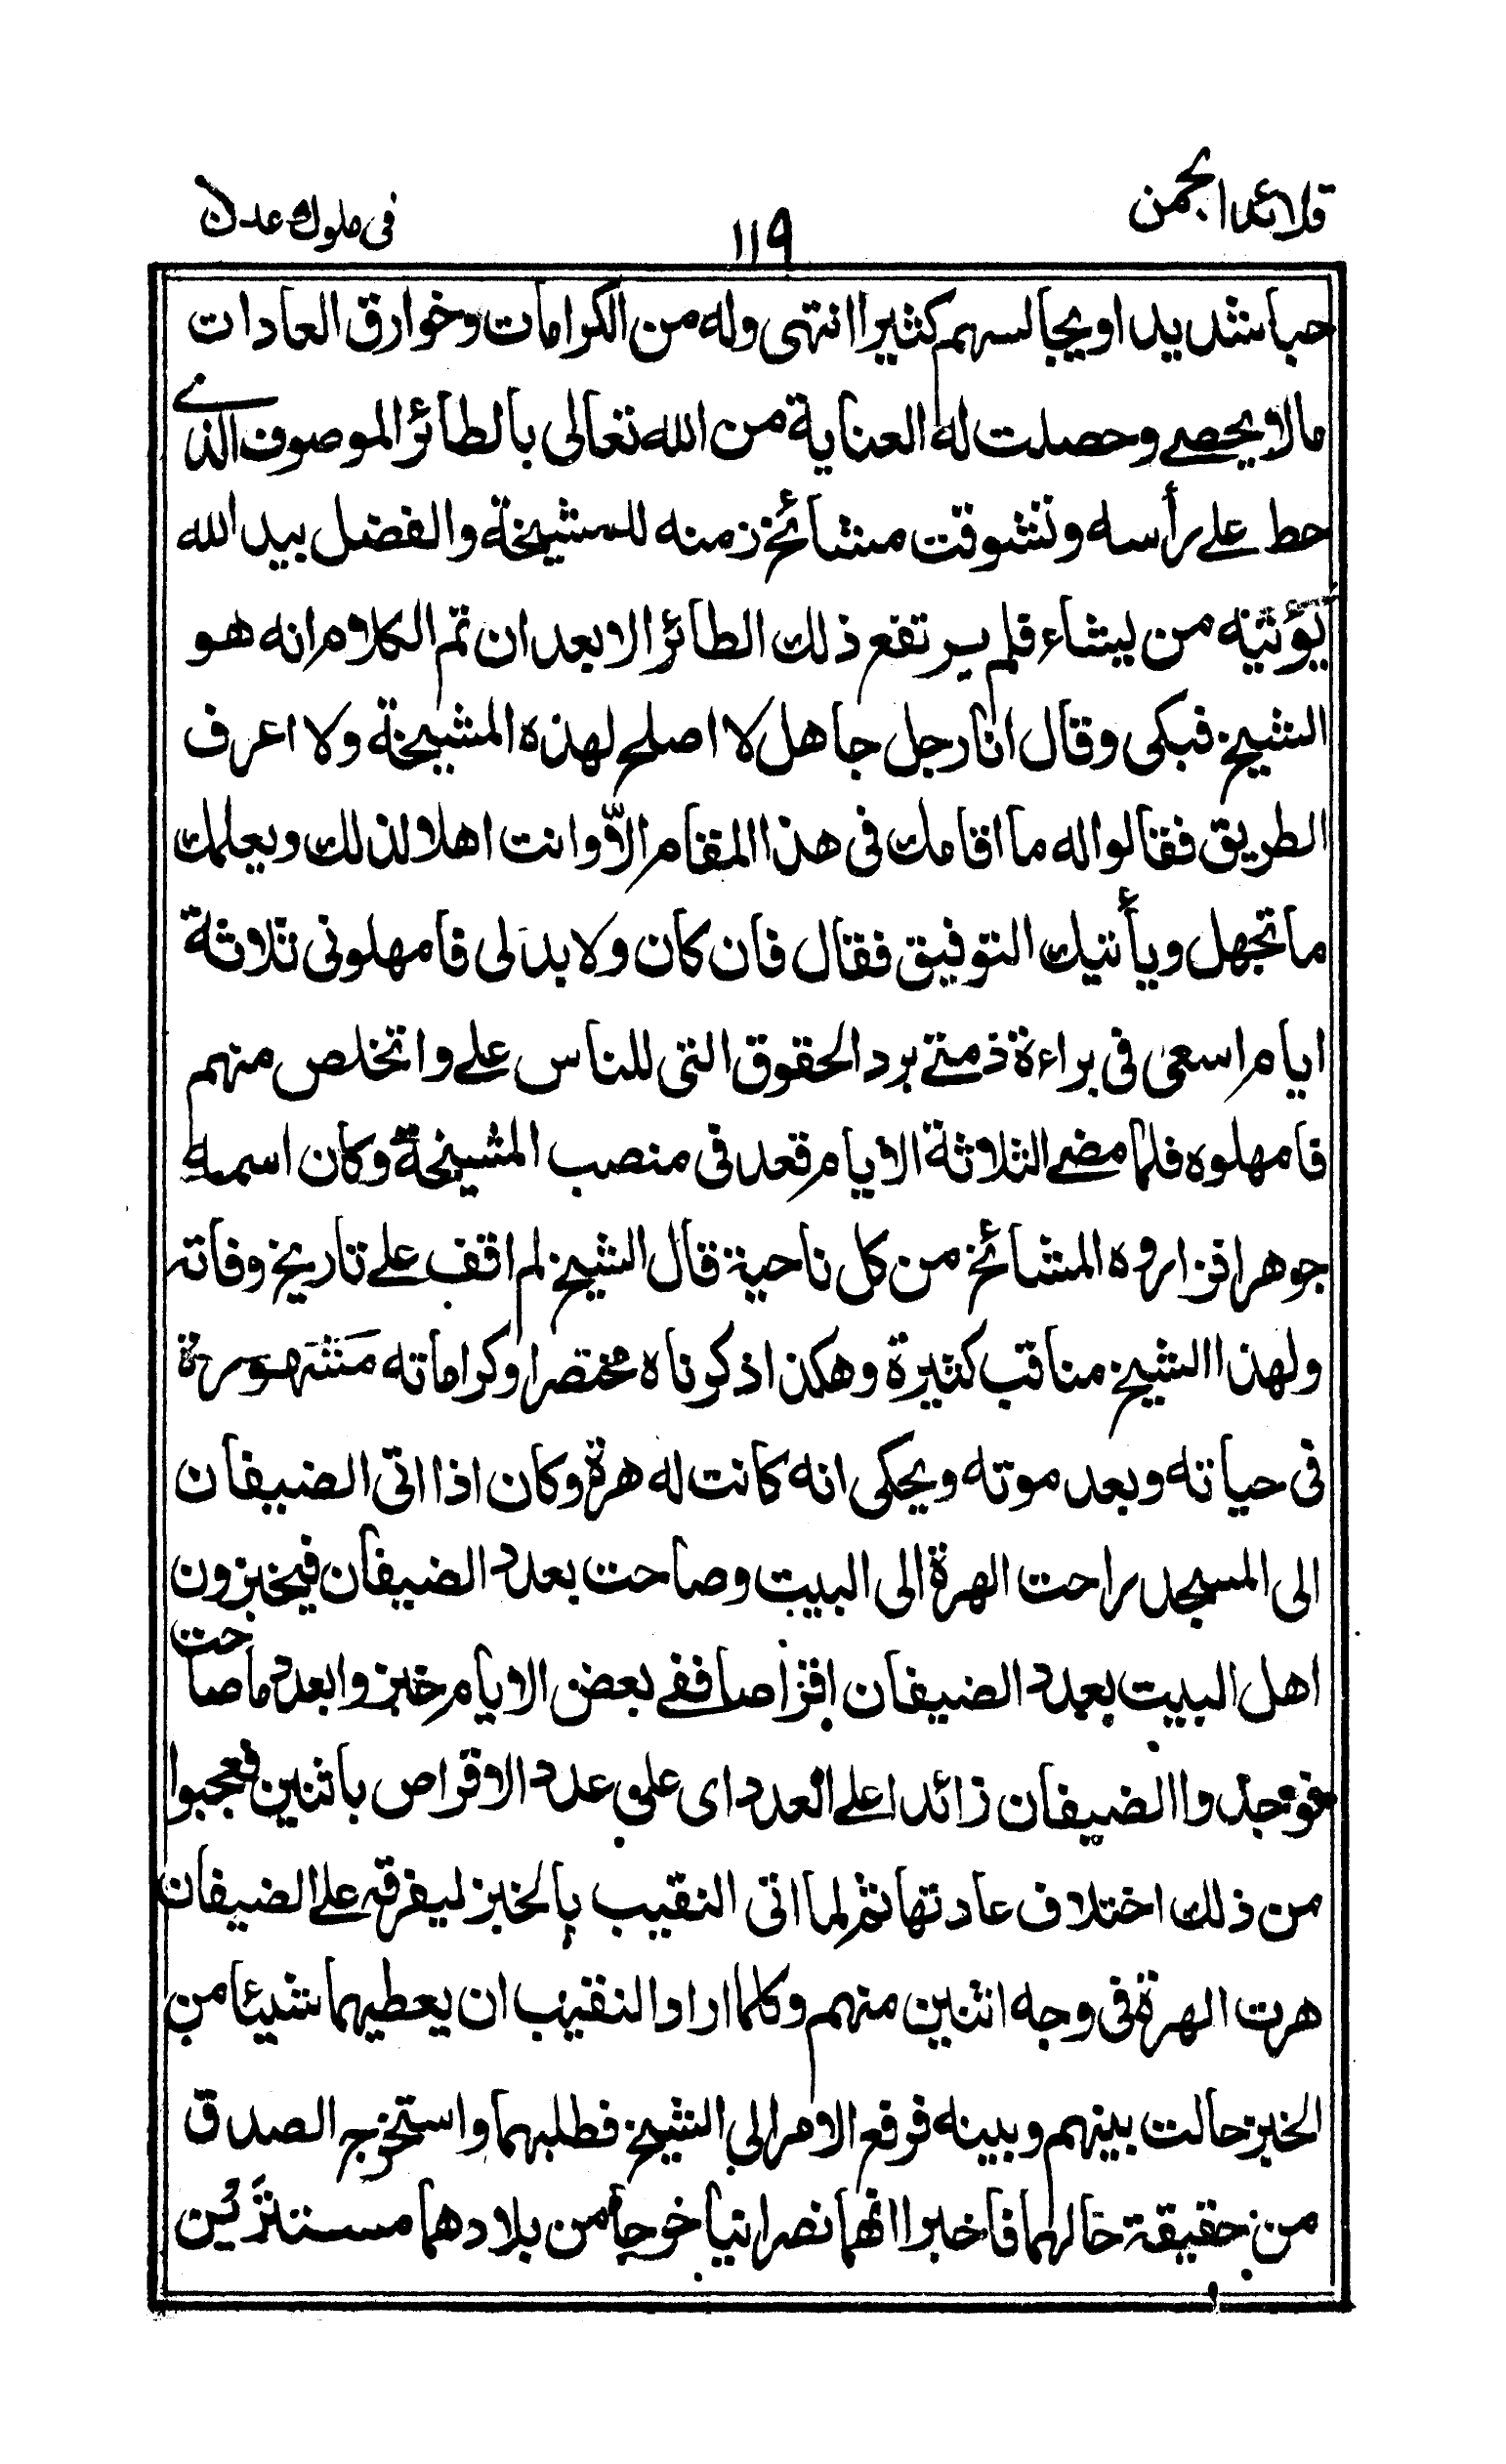 قلائد الجمن
١١٩
فى ملوك عدن
حبا شديدا ويجالسهم كثيرا انتهى وله من الكرامات وخوارق العادات
مالا يحصى وحصلت له العناية من الله تعالى بالطائر الموصوف الذى
حط على رأسه وتشوقت مشائخ زمنه للمشيخة والفضل بيد الله
يؤتيه من يشاء فلم يرتفع ذلك الطائر الا بعد ان تم الكلام انه هو
الشيخ فبكى وقال انا رجل جاهل لا اصلح لهذه المشيخة ولا اعرف
الطريق فقالوا له ما اقامك فى هذا المقام الّا وانت اهلا لذلك ويعلمك
ما تجهل ويأتيك التوفيق فقال فان كان ولا بد لى فامهلونى ثلاثة
ايام اسعى فى براءة ذمتى برد الحقوق التى للناس على واتخلص منهم
فامهلوه فلما مضى الثلاثة الايام قعد فى منصب المشيخة وكان اسمه
جوهرا فزاروه المشائخ من كل ناحية قال الشيخ لم اقف على تاريخ وفاته
ولهذا الشيخ مناقب كثيرة وهكذا ذكرناه مختصرا وكراماته مَشهورة
فى حياته وبعد موته ويحكى انه كانت له هرة وكان اذا اتى الضيفان
الى المسجد راحت الهرة الى البيت وصاحت بعدد الضيفان فيخبزون
اهل البيت بعدد الضيفان اقراصا ففى بعض الايام خبزوا بعدد ما صاحت
فوجدوا الضيفان زائدا على العدد اى على عدد الاقراص باثنين فعجبوا
من ذلك اختلاف عادتها ثم لما اتى النقيب بالخبز ليفرقه على الضيفان
هرت الهرة فى وجه اثنين منهم وكلما اراد النقيب ان يعطيهما شيئا من
الخبز حالت بينهم وبينه فرفع الامر الى الشيخ فطلبهما واستخرجه الصدق
من حقيقة حالهما فاخبرا انهما نصرانيا خرجا من بلادهما